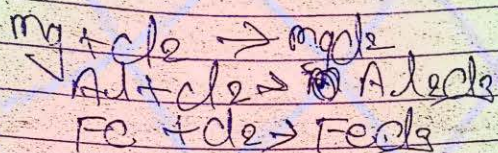 mg + cl2 → mgcl2
Al + cl2 → Al2cl3
FC + cl2 → FeCl3